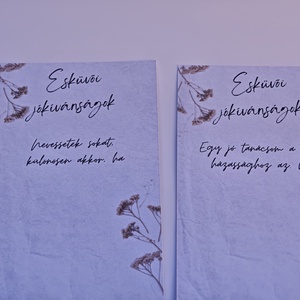 Esküvői
jókívánságok
Nevessetek sokat,
különösen akkor, ha
Esküvői
jókívánságok
Egy jó tanácsom a
házassághoz az,